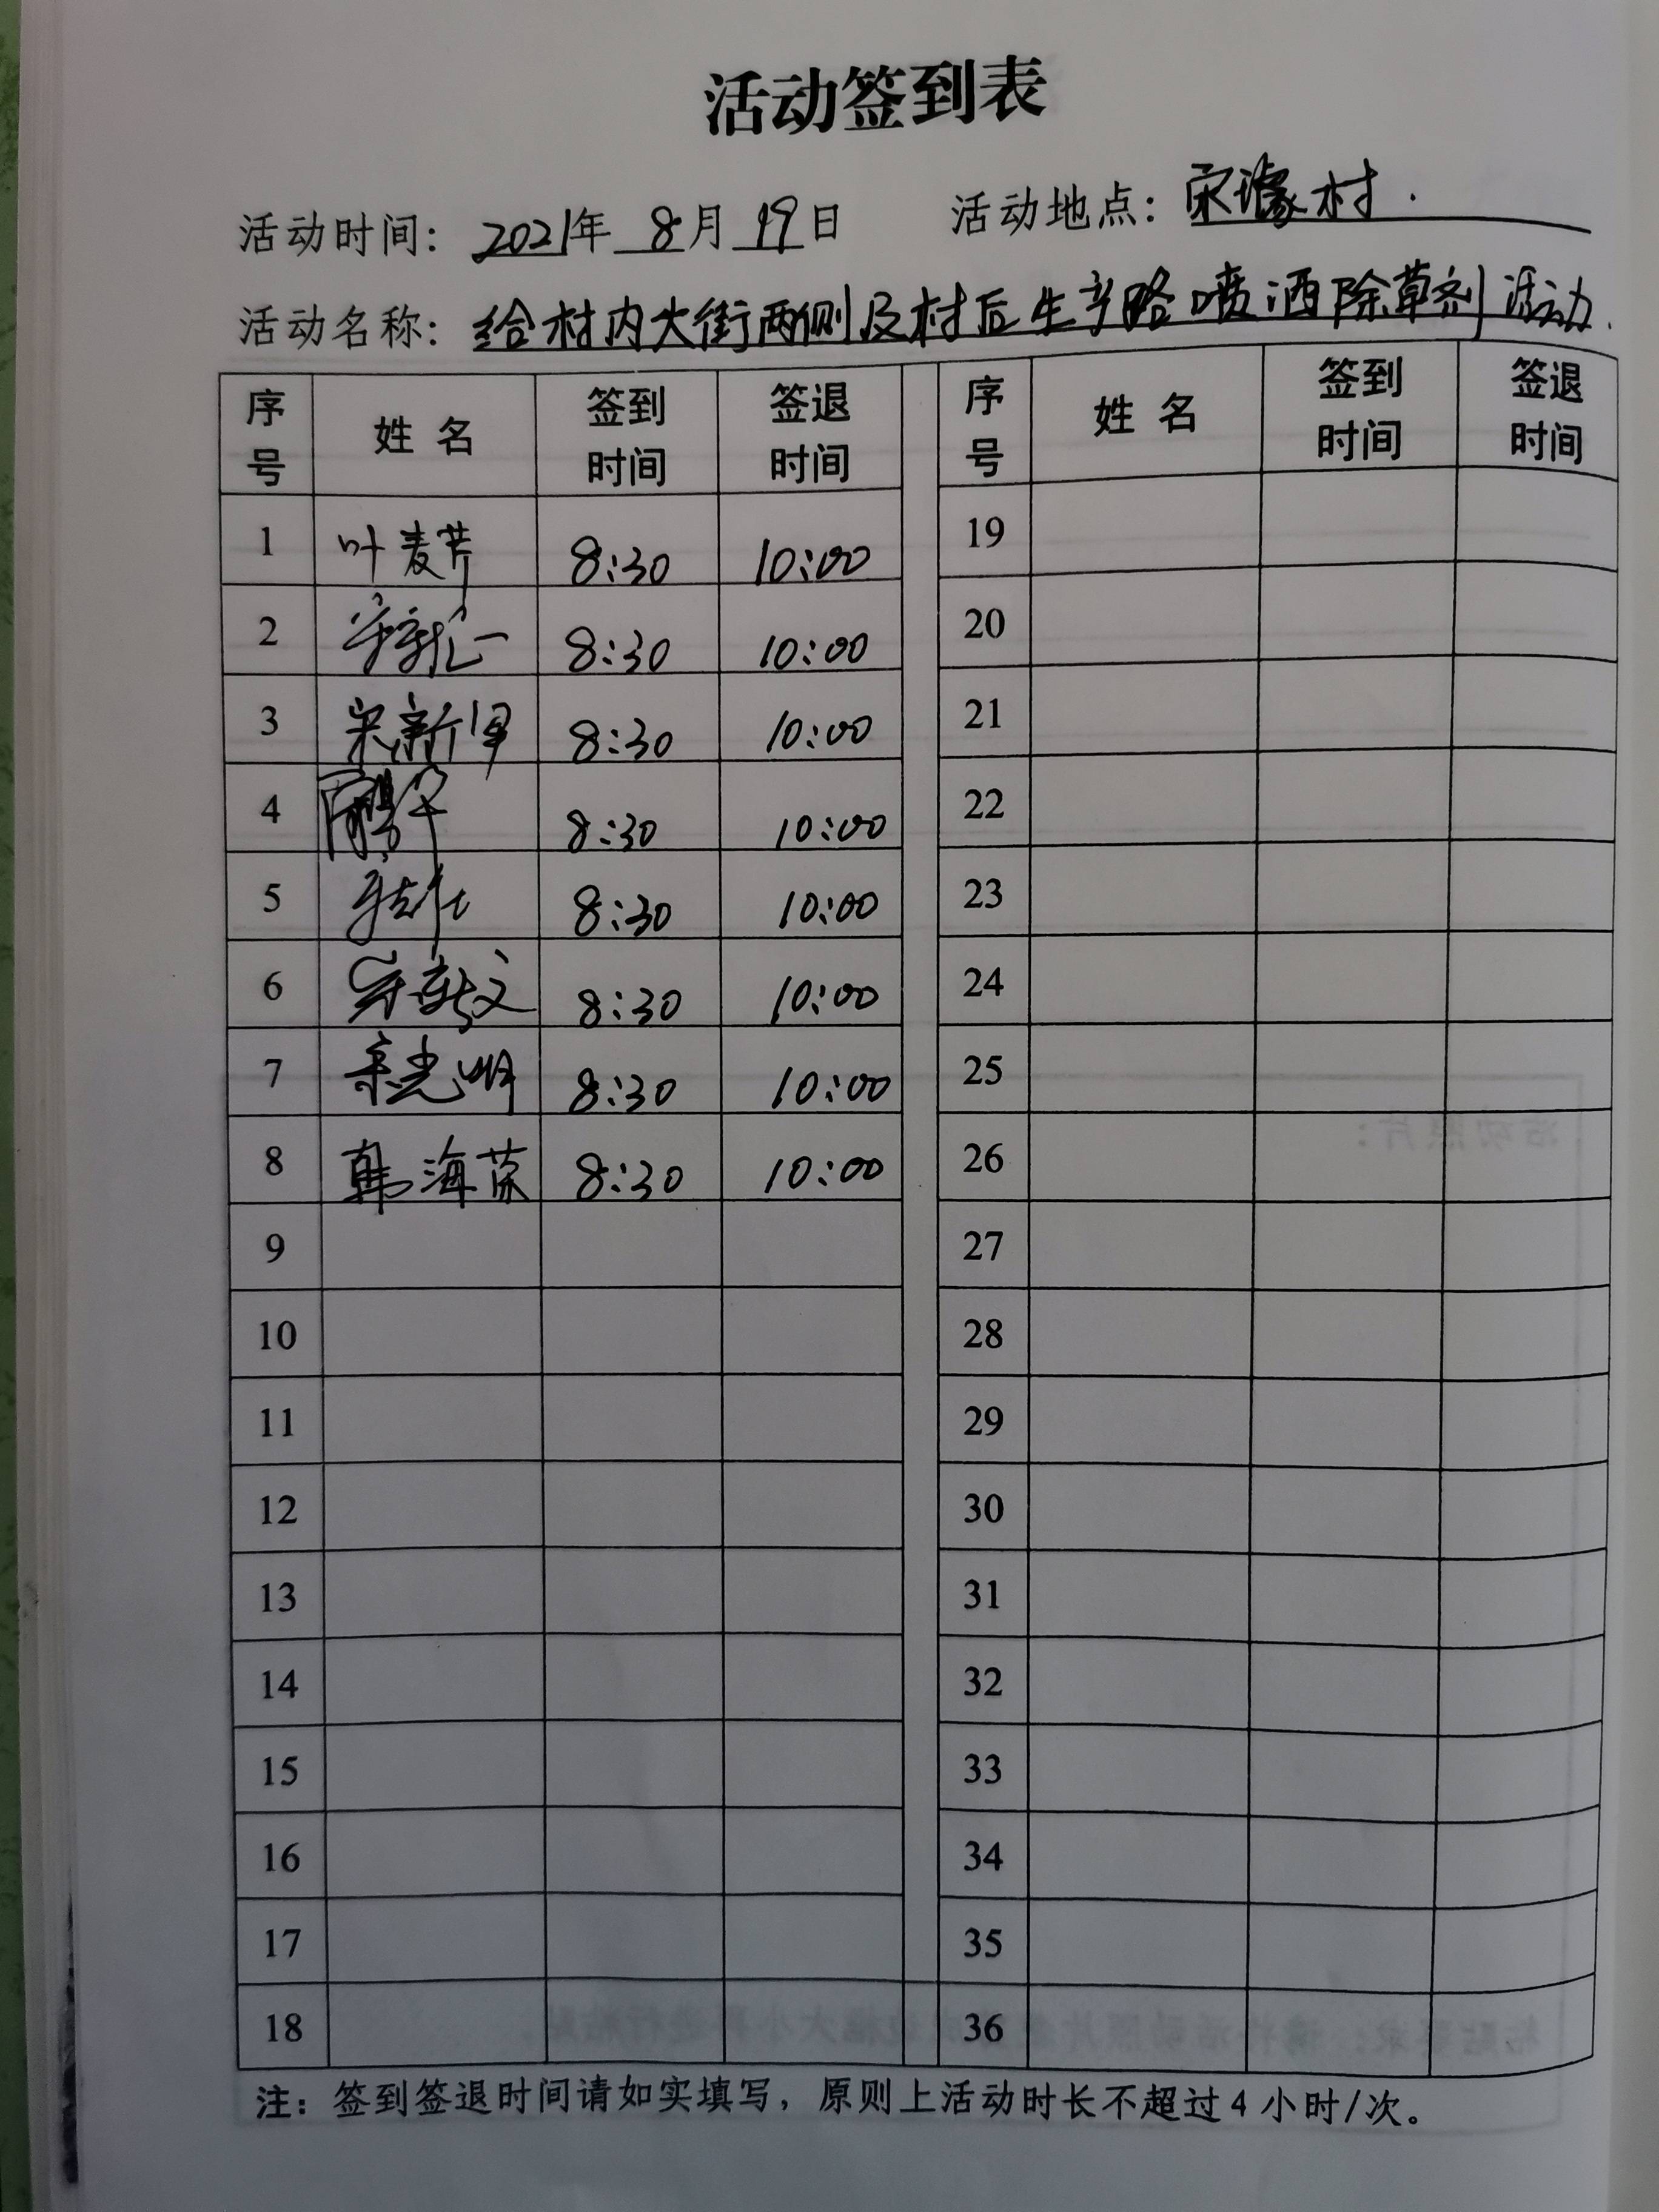 活动签到表
活动时间：2021年 8月 19日 活动地点：宋壕村.
活动名称：给村内大街两侧及村后生产路喷洒除草剂活动.
序号 姓名 签到时间 签退时间 序号 姓名 签到时间 签退时间
1 叶麦芹 8:30 10:00 19
2 8:30 10:00 20
3 宋新军 8:30 10:00 21
4 8:30 10:00 22
5 8:30 10:00 23
6 8:30 10:00 24
7 宋光明 8:30 10:00 25
8 韩海荣 8:30 10:00 26
9 27
10 28
11 29
12 30
13 31
14 32
15 33
16 34
17 35
18 36
注：签到签退时间请如实填写，原则上活动时长不超过4小时/次。